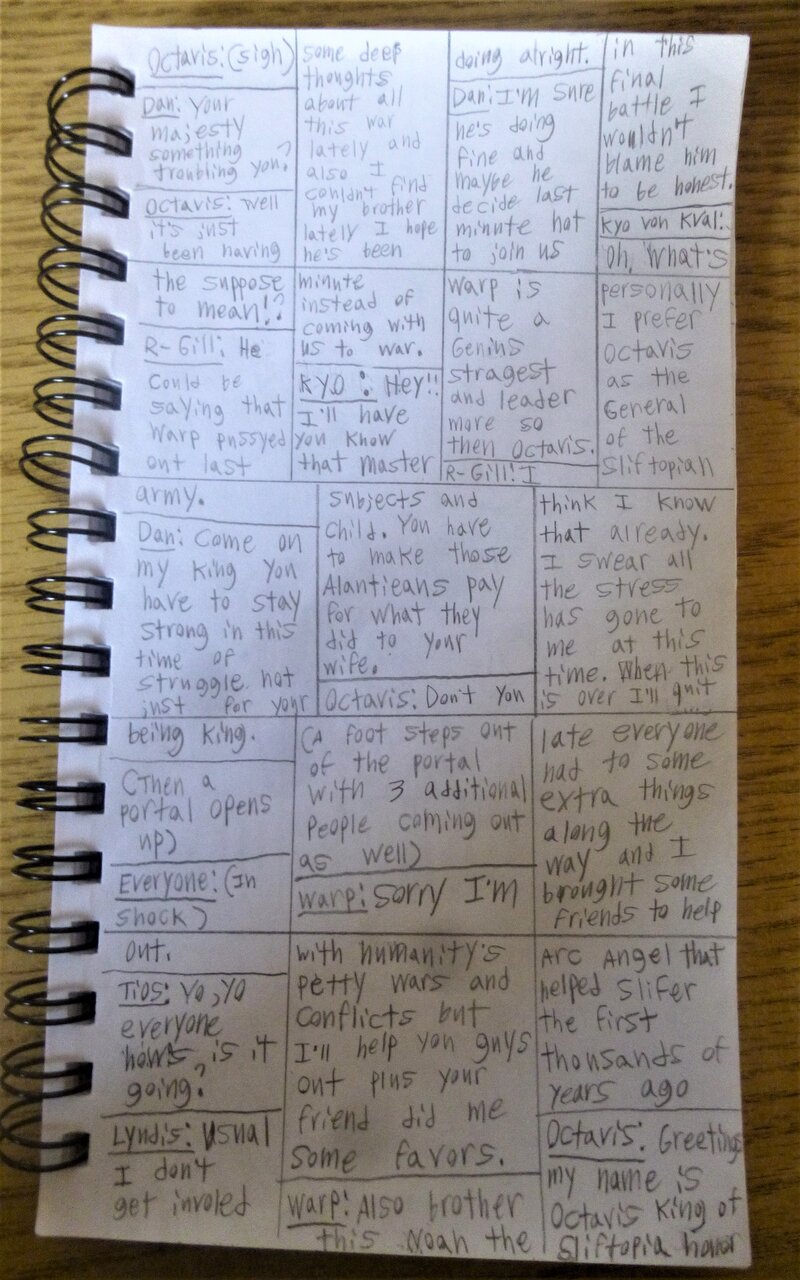 Octavis: (sigh)
Dan: Your
majesty
something
troubling you?
Octavis: Well
it's just
been having
some deep
thoughts
about all
this war
lately and
also I
couldn't find
my brother
lately I hope
he's been
doing alright.
Dan: I'm sure
he's doing
fine and
maybe he
decide last
minute not
to join us
in this
final
battle I
wouldn't
blame him
to be honest.
Kyo von Kval:
Oh, What's
the suppose
to mean!?
R-Gill: He
could be
saying that
Warp pussyed
out last
minute
instead of
coming with
us to war.
KYO: Hey!!
I'll have
you know
that master
Warp is
quite a
Genius
stragest
and leader
more so
then Octavis.
R-Gill: I
personally
I prefer
Octavis
as the
General
of the
Sliftopian
army.
Dan: Come on
my king you
have to stay
strong in this
time of
struggle not
just for your
subjects and
child. You have
to make those
Alantieans pay
for what they
did to your
wife.
Octavis: Don't you
think I know
that already.
I swear all
the stress
has gone to
me at this
time. When this
is over I'll quit
being king.
(Then a
portal opens
up)
Everyone: (In
shock)
(A foot steps out
of the portal
with 3 additional
people coming out
as well)
Warp: Sorry I'm
late everyone
had to some
extra things
along the
way and I
brought some
friends to help
out.
Tios: Yo, Yo
everyone
how's is it
going?
Lyndis: Usual
I don't
get involed
with humanity's
petty wars and
conflicts but
I'll help you guys
out plus your
friend did me
some favors.
Warp: Also brother
this Noah the
Arc Angel that
helped Slifer
the first
thousands of
years ago
Octavis: Greetings
my name is
Octavis King of
Sliftopia honor